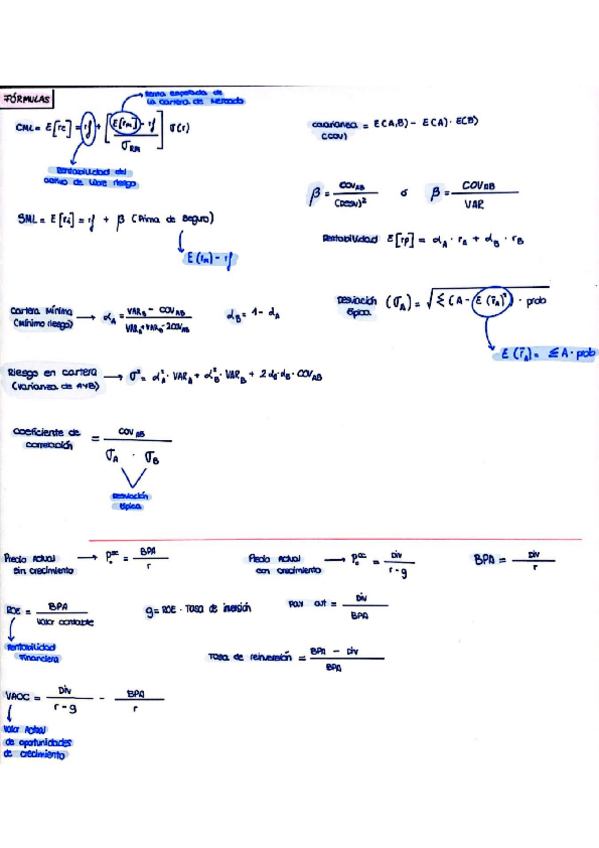 FÓRMULAS
Renta esperada de
la cartera de Mercado
CML = E[rc] = rf + [E[rm] - rf / σRM] σ(r)
Rentabilidad del
activo de libre riesgo
covarianza = E(A,B) - E(A) · E(B)
(COV)
β = COV AB / (Desv)² ó β = COV AB / VAR
SML = E[ri] = rf + β (Prima de Seguro)
E(rm) - rf
Rentabilidad E[rp] = αA · rA + αB · rB
Cartera Mínima
(Mínimo riesgo) → αA = VARB - COVAB / VARA + VARB - 2COVAB αB = 1 - αA
Desviación
típica (σA) = √Σ(A - E(r̄A)² · prob
E(r̄A) = ΣA · prob
Riesgo en cartera
(Varianza de A y B) → σ² = α²A · VARA + α²B · VARB + 2 αA · αB · COVAB
Coeficiente de
correlación = COV AB / σA · σB
Desviación
típica
Precio Actual
sin crecimiento → P₀ = BPA / r
Precio Actual
con crecimiento → P₀ = Div / r - g
BPA = Div / r
ROE = BPA / Valor contable
Rentabilidad
Financiera
g = ROE · Tasa de inversión
Pay out = Div / BPA
Tasa de reinversión = BPA - Div / BPA
VAOC = Div / r - g - BPA / r
Valor Actual
de oportunidades
de crecimiento